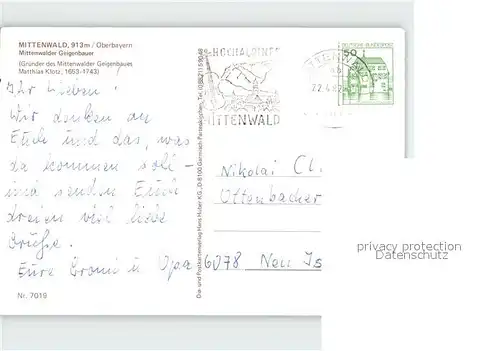 MITTENWALD, 913 m / Oberbayern
Mittenwalder Geigenbauer
(Gründer des Mittenwalder Geigenbaues
Matthias Klotz, 1653-1743)
Ihr Lieben!
Wir denken an
Euch und das, was
da kommen soll -
und senden Euch
dreien viel liebe
Grüße.
Eure Oromi u Opa
Nr. 7019
Die- und Postkartenverlag Hans Huber KG, D-8100 Garmisch-Partenkirchen, Tel.
HOCHALPINES
MITTENWALD
MITTENWALD
DEUTSCHE BUNDESPOST
50
Nikolai Cl.
Ottenbacher
6078 Neu Is
privacy protection
Datenschutz